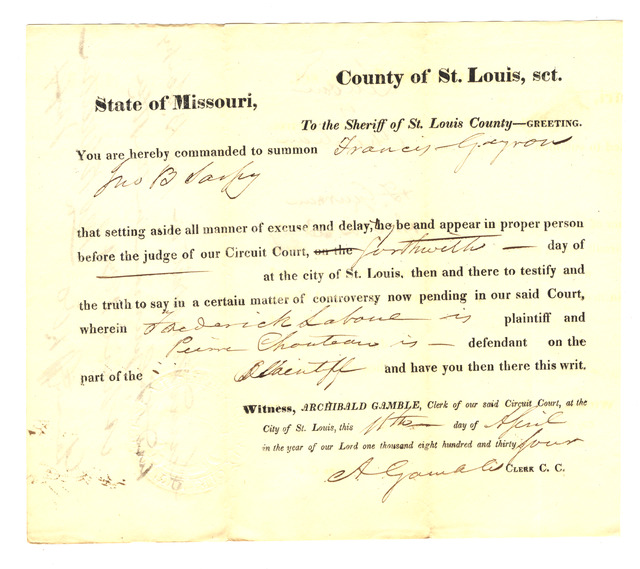 County of St. Louis, sct.
State of Missouri,
To the Sheriff of St. Louis County—GREETING.
You are hereby commanded to summon Francis Guyron
Jno B Sarpy
that setting aside all manner of excuse and delay, they be and appear in proper person
before the judge of our Circuit Court, on the forthwith — day of
at the city of St. Louis, then and there to testify and
the truth to say in a certain matter of controversy now pending in our said Court,
wherein Frederick Laboue is plaintiff and
Pierre Chouteau is — defendant on the
part of the Plaintiff and have you then there this writ.
Witness, ARCHIBALD GAMBLE, Clerk of our said Circuit Court, at the
City of St. Louis, this 11th day of April
in the year of our Lord one thousand eight hundred and thirty four
A Gamble CLERK C. C.